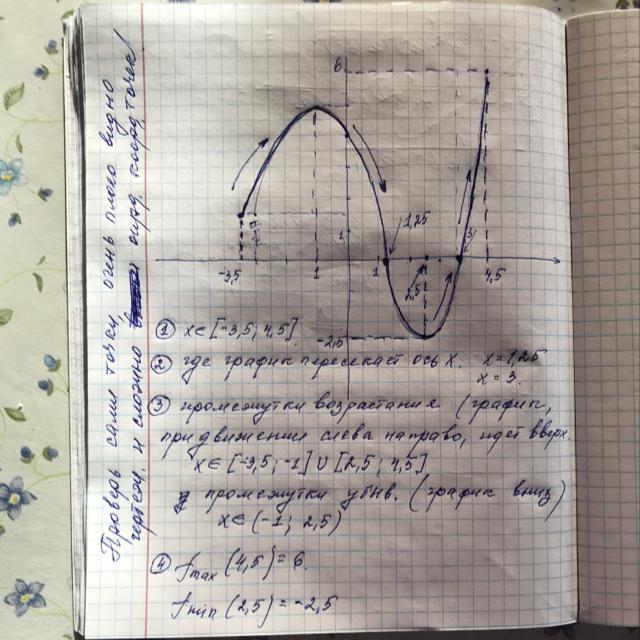 Проверь сами точки, очень плохо видно
чертеж, и сложно опред. коорд. точек!
6
1,25
1
-3,5
1
1
2,5
3
4,5
-2,5
① x∈[-3,5; 4,5].
② где график пересекает ось X. x=1,25
x=3.
③ промежутки возрастания (график,
при движении слева направо, идет вверх.
x∈[-3,5; -1]∪[2,5; 4,5]
промежутки убыв. (график вниз)
x∈(-1; 2,5)
④ fmax (4,5) = 6.
fmin (2,5) = -2,5